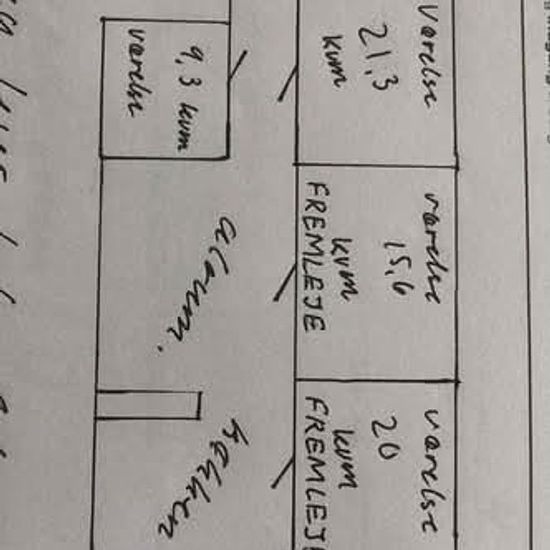 Værelse
21,3
kvm
9,3 kvm
værelse
værelse
15,6
kvm
FREMLEJE
værelse
20
kvm
FREMLEJE
køkken